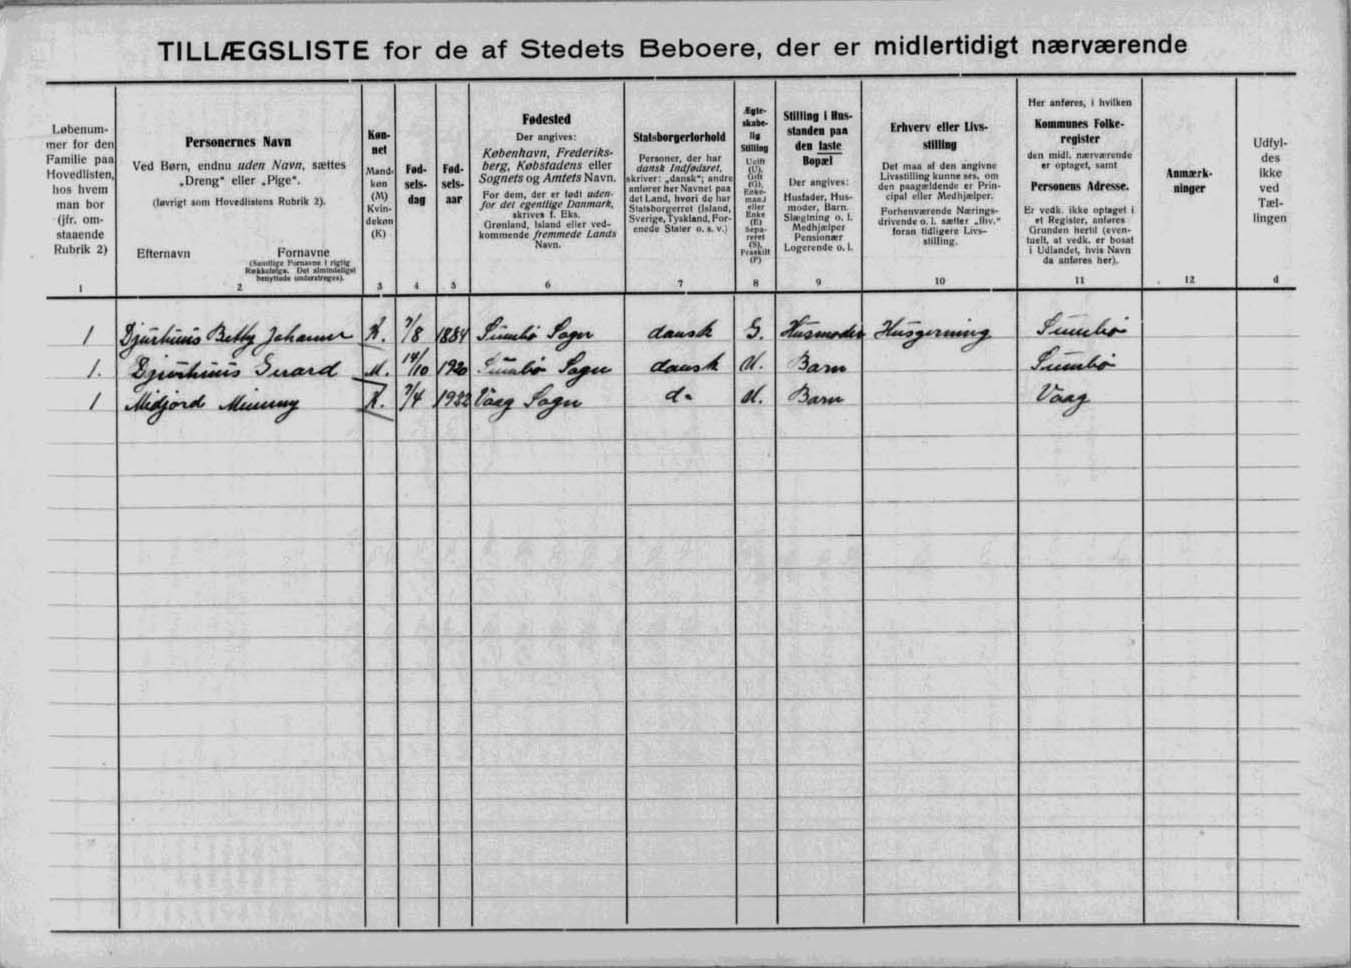 TILLÆGSLISTE for de af Stedets Beboere, der er midlertidigt nærværende
Løbenum-
mer for den
Familie paa
Hovedlisten,
hos hvem
man bor
(jfr. om-
staaende
Rubrik 2)
1
Personernes Navn
Ved Børn, endnu uden Navn, sættes
„Dreng“ eller „Pige“.
(Iøvrigt som Hovedlistens Rubrik 2).
Efternavn Fornavne
(Samtlige Fornavne i rigtig
Rækkefølge. Det almindeligst
benyttede understreges).
2
Køn-
net
Mand-
køn
(M)
Kvin-
dekøn
(K)
3
Fød-
sels-
dag
4
Fød-
sels-
aar
5
Fødested
Der angives:
København, Frederiks-
berg, Købstadens eller
Sognets og Amtets Navn.
For dem, der er født uden-
for det egentlige Danmark,
skrives f. Eks.
Grønland, Island eller ved-
kommende fremmede Lands
Navn.
6
Statsborgerforhold
Personer, der har
dansk Indfødsret,
skriver: „dansk“; andre
anfører her Navnet paa
det Land, hvori de har
Statsborgerret (Island,
Sverige, Tyskland, For-
enede Stater o. s. v.)
7
Ægte-
skabe-
lig
Stilling
Ugift
(U),
Gift
(G),
Enke-
mand
eller
Enke
(E)
Sepa-
reret
(S),
Fraskilt
(F)
8
Stilling i Hus-
standen paa
den faste
Bopæl
Der angives:
Husfader, Hus-
moder, Barn.
Slægtning o. l.
Medhjælper
Pensionær
Logerende o. l.
9
Erhverv eller Livs-
stilling
Det maa af den angivne
Livsstilling kunne ses, om
den paagældende er Prin-
cipal eller Medhjælper.
Forhenværende Nærings-
drivende o. l. sætter „fhv.“
foran tidligere Livs-
stilling.
10
Her anføres, i hvilken
Kommunes Folke-
register
den midl. nærværende
er optaget, samt
Personens Adresse.
Er vedk. ikke optaget i
et Register, anføres
Grunden hertil (even-
tuelt, at vedk. er bosat
i Udlandet, hvis Navn
da anføres her).
11
Anmærk-
ninger
12
Udfyl-
des
ikke
ved
Tæl-
lingen
d
1 Djurhuus Betty Johanne K. 7/8 1884 Sumbø Sogn dansk G. Husmoder Husgerning Sumbø
1. Djurhuus Evard M. 14/10 1920 Sumbø Sogn dansk U. Barn Sumbø
1 Midjord Mimmy K. 7/4 1922 Vaag Sogn d- U. Barn Vaag